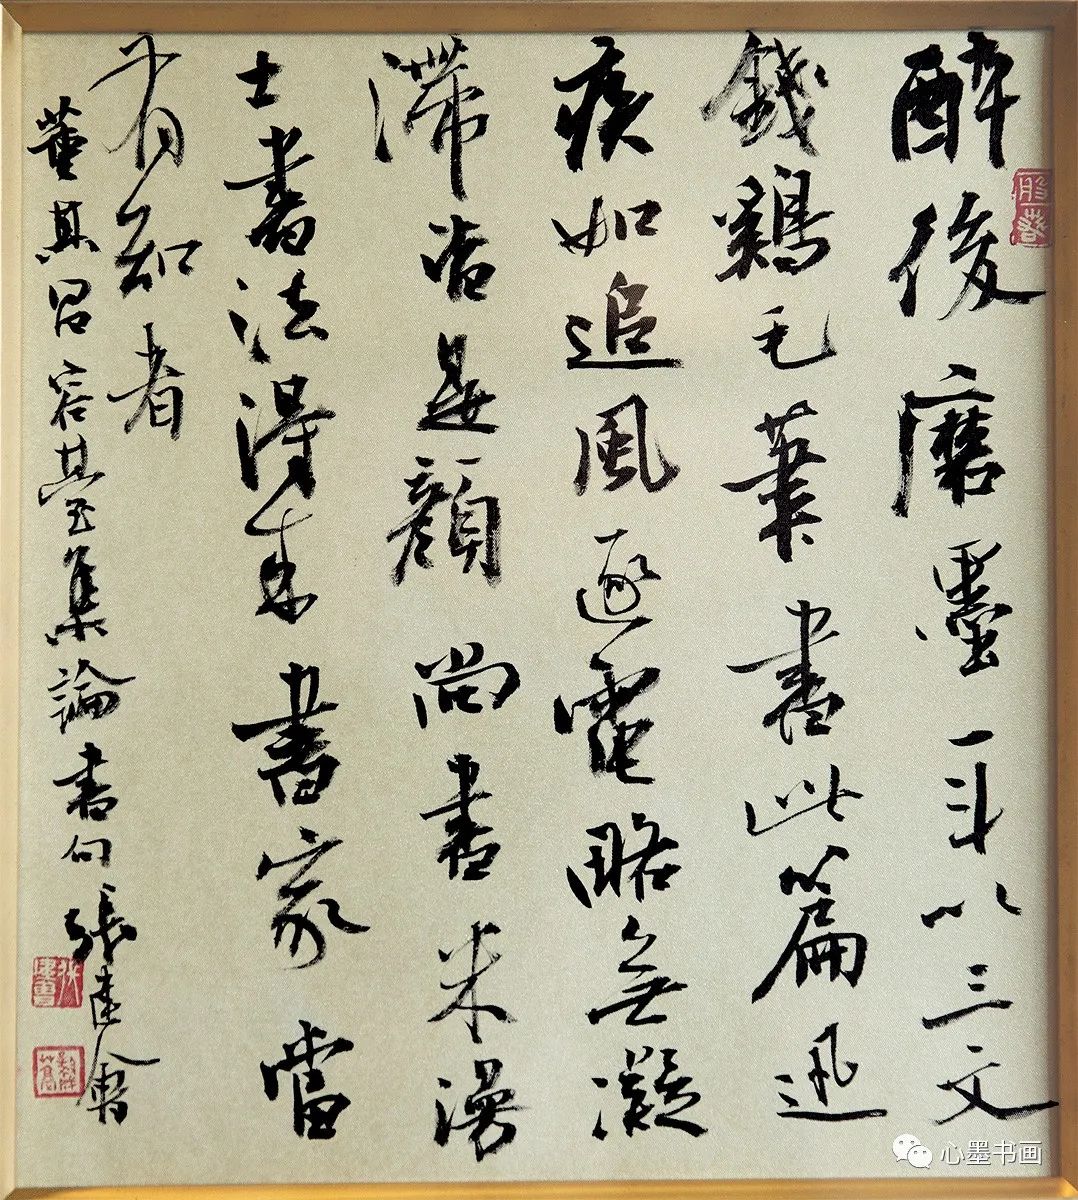 醉後磨墨一斗以三文
錢鷄毛筆書此篇迅
疾如追風逐電略無凝
滯皆是顏尚書米漫
士書法得來書家當
有知者
董其昌容臺集論書句 張建會
心墨书画